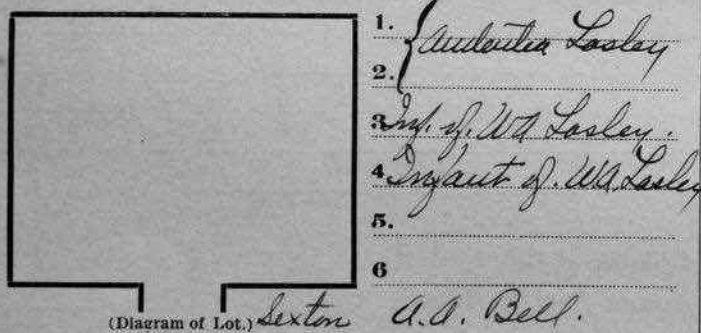 1. Lasley
2.
3. Inf. of. WA Lasley.
4. Infant of. WA Lasley
5.
6
(Diagram of Lot.) Sexton A. A. Bell.